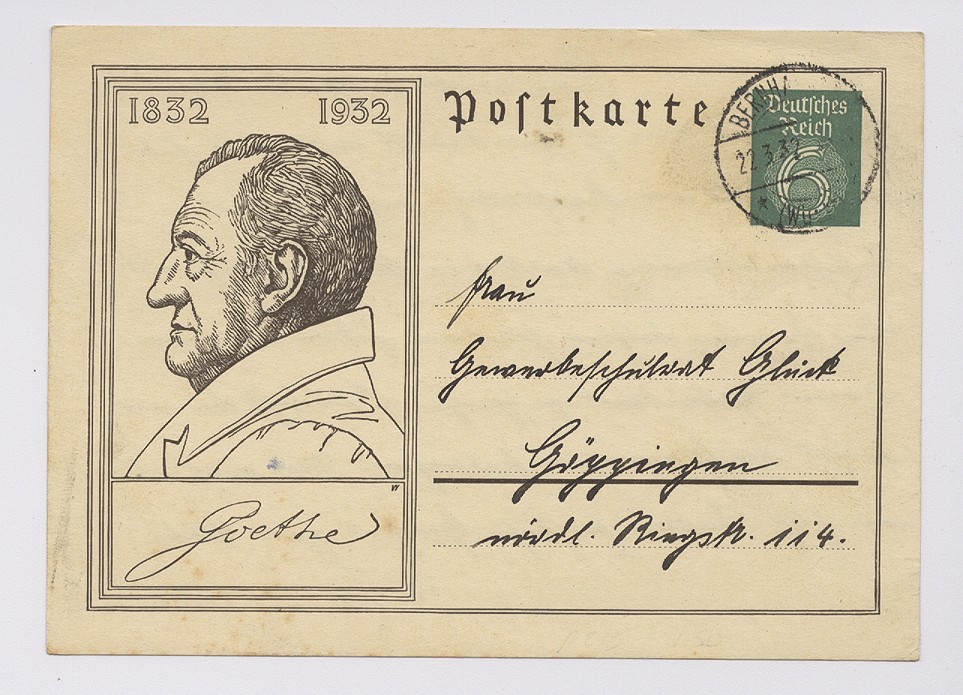 1832 1932
Postkarte
Deutsches
Reich
6
BERNHA
22.3.32
(Wü
Frau
Gewerbeschulrat Glück
Göppingen
nördl. Ringstr. 114.
Goethe